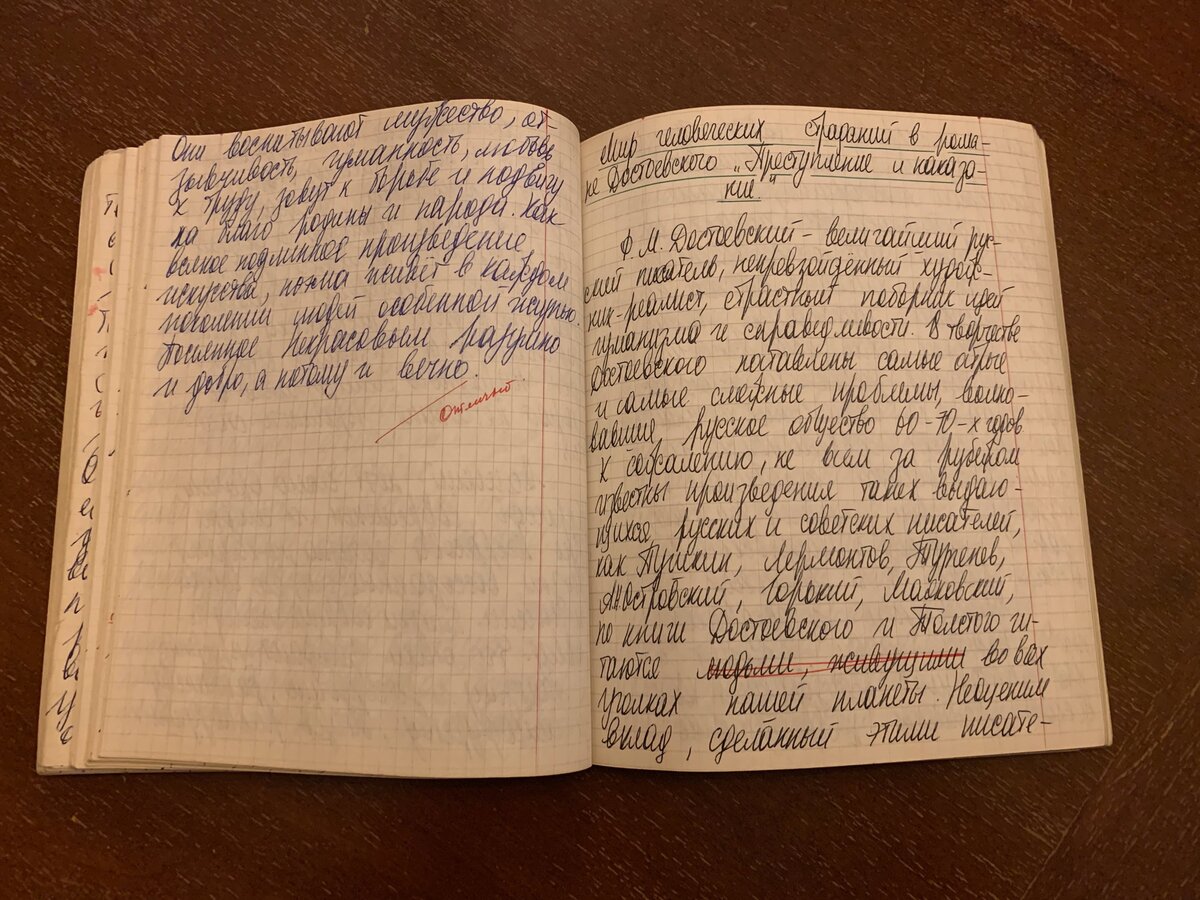 Они воспитывают мужество, от-
зывчивость, гуманность, любовь
к труду, зовут к борьбе и подвигу
на благо родины и народа. Как
всякое подлинное произведение
искусства, поэма живёт в каждом
поколении людей особенной жизнью.
Посеянное Некрасовым разумно
и добро, а потому и вечно.
Отлично.
Мир человеческих страданий в рома-
не Достоевского „Преступление и наказа-
ние."
Ф. М. Достоевский - величайший рус-
ский писатель, непревзойдённый худож-
ник-реалист, страстный поборник идей
гуманизма и справедливости. В творчестве
Достоевского поставлены самые острые
и самые сложные проблемы, волно-
вавшие русское общество 60-70-х годов
К сожалению, не всем за рубежом
известны произведения таких выдаю-
щихся русских и советских писателей,
как Пушкин, Лермонтов, Тургенев,
А.Н.Островский, Горький, Маяковский,
но книги Достоевского и Толстого чи-
таются людьми, живущими во всех
уголках нашей планеты. Неоценим
вклад, сделанный этими писате-